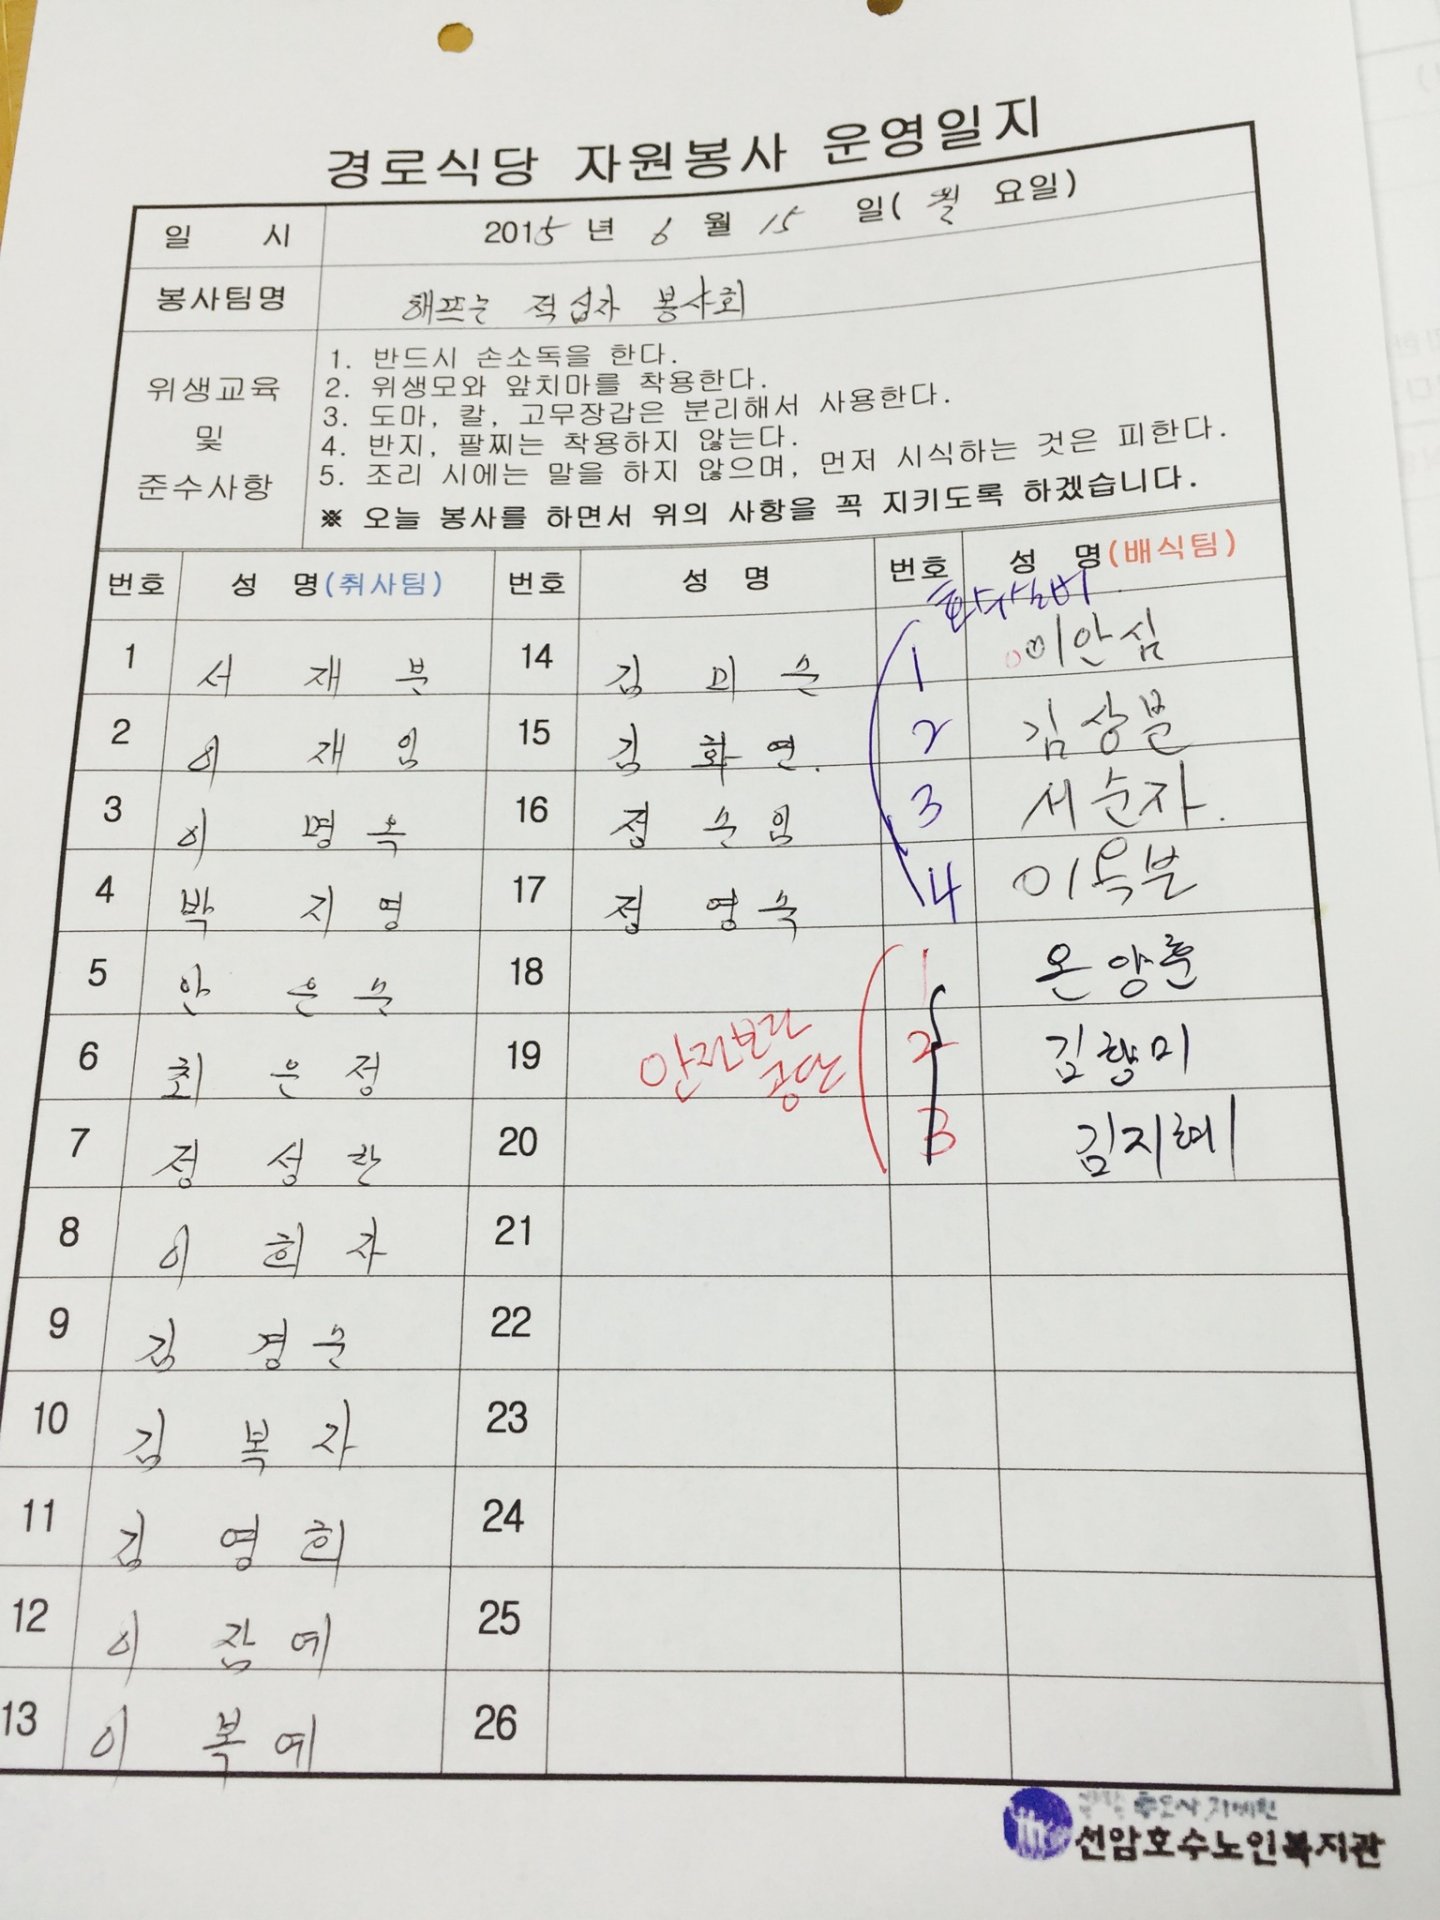 경로식당 자원봉사 운영일지
일 시 2015년 6월 15일(월요일)
봉사팀명 해뜨는 적십자 봉사회
위생교육 및 준수사항
1. 반드시 손소독을 한다.
2. 위생모와 앞치마를 착용한다.
3. 도마, 칼, 고무장갑은 분리해서 사용한다.
4. 반지, 팔찌는 착용하지 않는다.
5. 조리 시에는 말을 하지 않으며, 먼저 시식하는 것은 피한다.
※ 오늘 봉사를 하면서 위의 사항을 꼭 지키도록 하겠습니다.
번호 성 명(취사팀) 번호 성 명 번호 성 명(배식팀)
1 서재분 14 김미순 1 이안심
2 이재임 15 김화연. 2 김상분
3 이명옥 16 정순임 3 서순자.
4 박지영 17 정영숙 4 이옥분
5 안은순 18 1 온양훈
6 최은정 19 안전보건공단 2 김향미
7 정성란 20 3 김지혜
8 이희자 21
9 김경순 22
10 김복자 23
11 김영희 24
12 이잠예 25
13 이복예 26
선암호수노인복지관